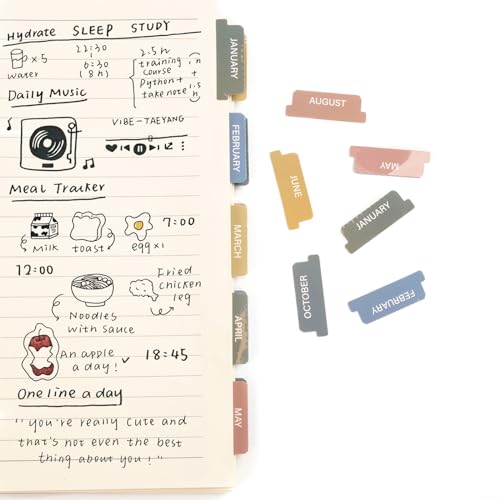 Hydrate SLEEP STUDY
×5
water
22:30
6:30
(8h)
2.5h
training
course
Python +
take note
1h
+
1.5
h
Daily Music
VIBE - TAEYANG
Meal Tracker
Milk toast egg×1 7:00
12:00
Noodles
with sauce
Fried
chicken
leg
An apple
a day! 18:45
One line a day
"you're really cute and
that's not even the best
thing about you!"
JANUARY
FEBRUARY
MARCH
APRIL
MAY
AUGUST
MAY
JUNE
JANUARY
OCTOBER
FEBRUARY